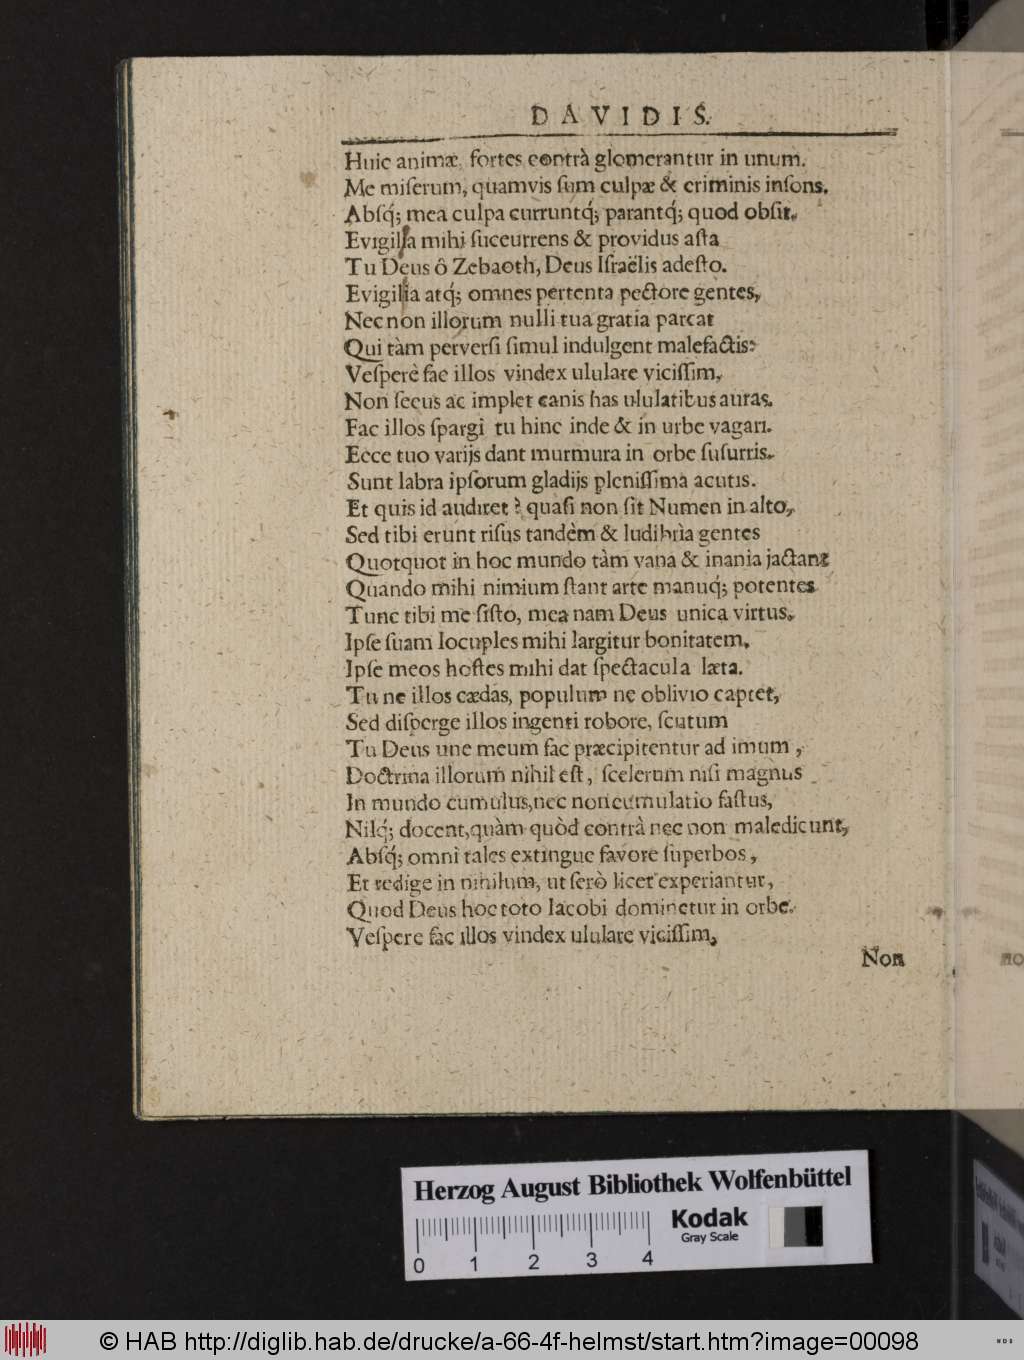 DAVIDIS.
Huic animæ, fortes contrà glomerantur in unum.
Me miſerum, quamvis ſum culpæ & criminis inſons,
Abſq́; mea culpa curruntq́; parantq́; quod obſit.
Evigila mihi ſuccurrens & providus aſta
Tu Deus ô Zebaoth, Deus Iſraëlis adeſto.
Evigilia atq́; omnes pertenta pectore gentes,
Nec non illorum nulli tua gratia parcat
Qui tàm perverſi ſimul indulgent malefactis:
Veſperè fac illos vindex ululare viciſſim,
Non ſecus ac implet canis has ululatibus auras.
Fac illos ſpargi tu hinc inde & in urbe vagari.
Ecce tuo varijs dant murmura in orbe ſuſurris.
Sunt labra ipſorum gladijs pleniſſima acutis.
Et quis id audiret? quaſi non ſit Numen in alto,
Sed tibi erunt riſus tandèm & ludibria gentes
Quotquot in hoc mundo tàm vana & inania jactant
Quando mihi nimium ſtant arte manuq́; potentes
Tunc tibi me ſiſto, mea nam Deus unica virtus.
Ipſe ſuam locuples mihi largitur bonitatem,
Ipſe meos hoſtes mihi dat ſpectacula læta.
Tu ne illos cædas, populum ne oblivio captet,
Sed diſperge illos ingenti robore, ſcutum
Tu Deus une meum fac præcipitentur ad imum,
Doctrina illorum nihil eſt, ſcelerum niſi magnus
In mundo cumulus, nec non cumulatio faſtus,
Nilq́; docent, quàm quòd contrà nec non maledicunt,
Abſq́; omni tales extingue favore ſuperbos,
Et redige in nihilum, ut ſerò licet experiantur,
Quod Deus hoc toto Iacobi dominetur in orbe.
Veſpere fac illos vindex ululare viciſſim,
Non
no
Herzog August Bibliothek Wolfenbüttel
Kodak
Gray Scale
0 1 2 3 4
© HAB http://diglib.hab.de/drucke/a-66-4f-helmst/start.htm?image=00098